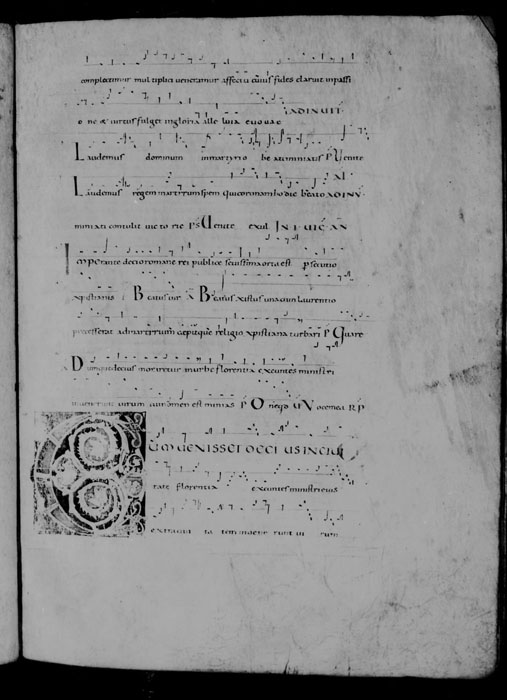 complectimur multiplici veneramur affectu cuius fides claruit in passi
one & uirtus fulget in gloria alle luia euouae AD INUIT
Laudemus dominum in martyrio beati miniatis Ps Uenite
Laudemus regem martirum spem qui coronam hodie beato AD INV
miniati contulit uictorie Ps Uenite exul IN I UIG AN
Imperante decio romane rei publice seuissima orta est persecutio
xpistianis Beatus uir A Beatus xistus una cum Laurentio
precesserat ad martirium deputque religio xpistiana turbari Ps Quare
A Dumque decius moraretur in urbe florentia exeuntes ministri
uirum cui nomen est minias Ps O neqo A Uoce mea RP
CUM UENISSET DECIUS IN CIUI
tate florentia exeuntes ministri eius
extra ciuitatem inuenerunt uirum